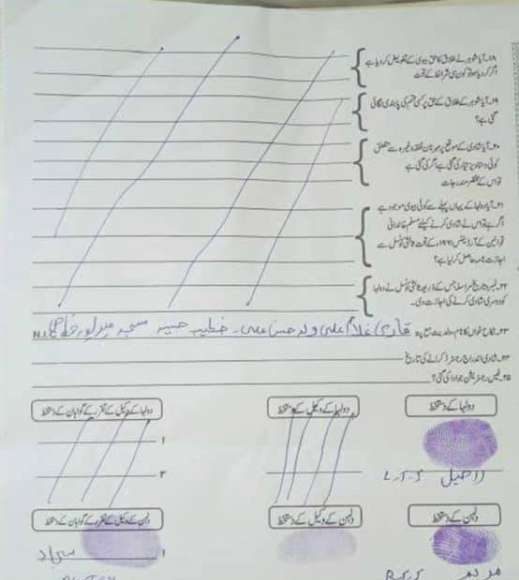 ۱۸۔ آیا شوہر نے طلاق کا حق بیوی کے تفویض کر دیا ہے
اگر کر دیا ہو تو کون سی شرائط کے تحت
۱۹۔ آیا شوہر کے طلاق کے حق پر کسی قسم کی پابندی لگائی
گئی ہے؟
۲۰۔ آیا شادی کے موقع پر مہر نان نفقہ وغیرہ سے متعلق
کوئی دستاویز تیار کی گئی ہے اگر کی گئی ہے
تو اس کے مختصر مندرجات
۲۱۔ آیا دولہا کے یہاں پہلے سے کوئی بیوی موجود ہے
اگر ہے تو اس نے شادی کرنے کیلئے مسلم خاندانی
قوانین کے آرڈیننس ۱۹۶۱ء کے تحت ثالثی کونسل سے
اجازت نامہ حاصل کر لیا ہے؟
۲۲۔ نمبر و تاریخ مراسلہ جس کے ذریعہ ثالثی کونسل نے دولہا
کو دوسری شادی کرنے کی اجازت دی۔
۲۳۔ نکاح خواں کا نام ولدیت مع پتہ قاری غلام علی ولد حسن علی۔ خطیب مسجد
۲۴۔ شادی اندراج رجسٹر کرانے کی تاریخ
۲۵۔ فیس رجسٹریشن جو ادا کی گئی؟
دولہا کے دستخط
دولہا کے وکیل کے دستخط
دولہا کے وکیل کے تقرر کے گواہان کے دستخط
۱
۲
راحیل L.T.I
دلہن کے دستخط
دلہن کے وکیل کے دستخط
دلہن کے وکیل کے تقرر کے گواہان کے دستخط
۱
مریم